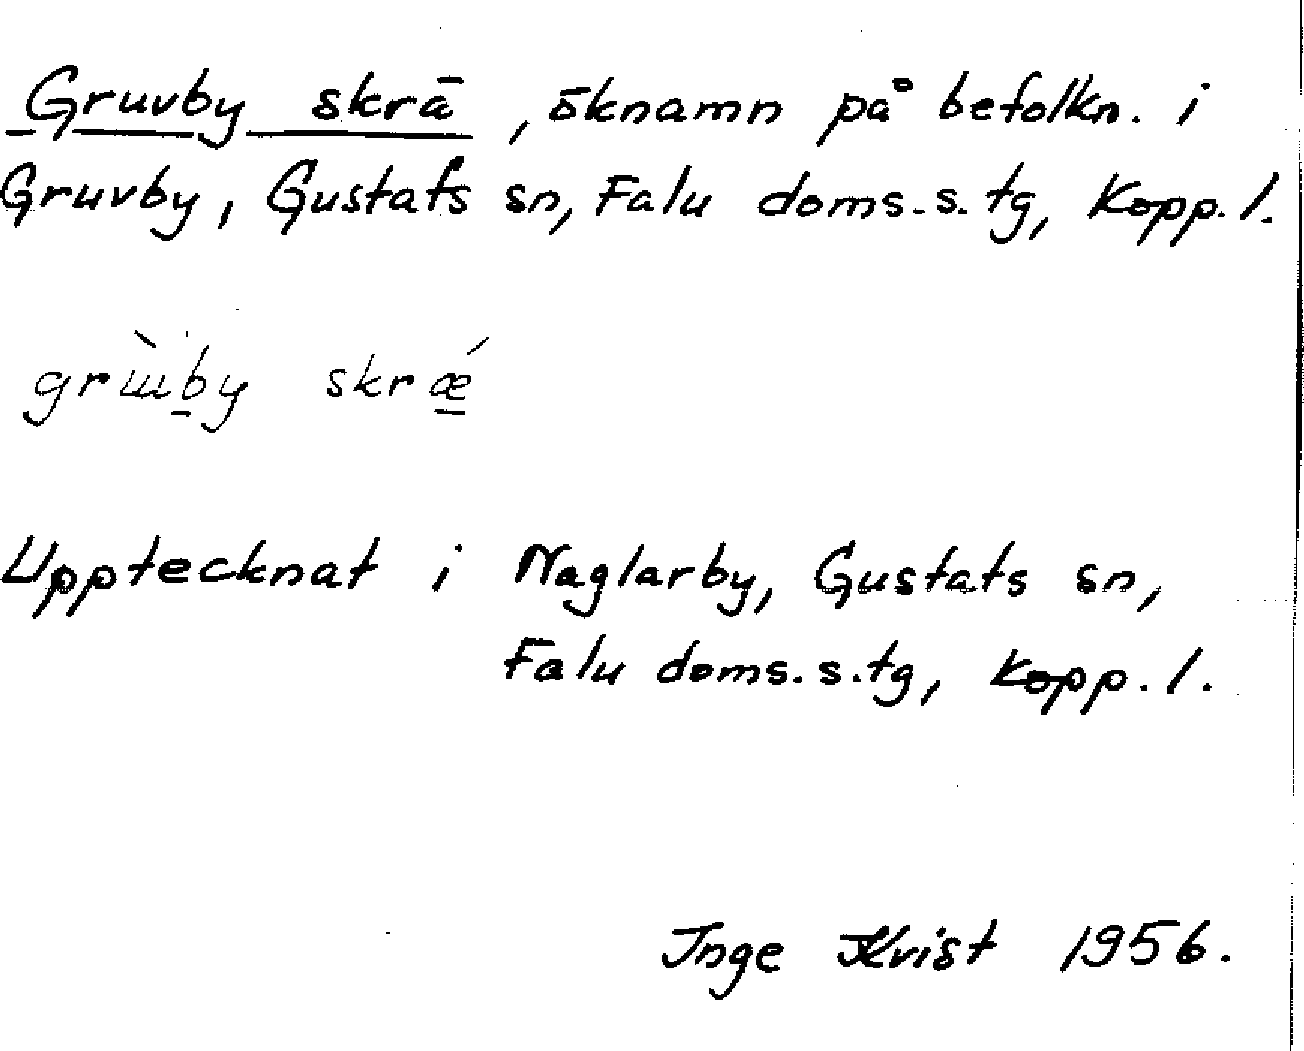 Gruvby skrä, öknamn på befolkn. i
Gruvby, Gustafs sn, Falu doms.s.tg, Kopp.l.
skrǽ
Upptecknat i Naglarby, Gustafs sn,
Falu doms.s.tg, Kopp.l.
Inge Kvist 1956.